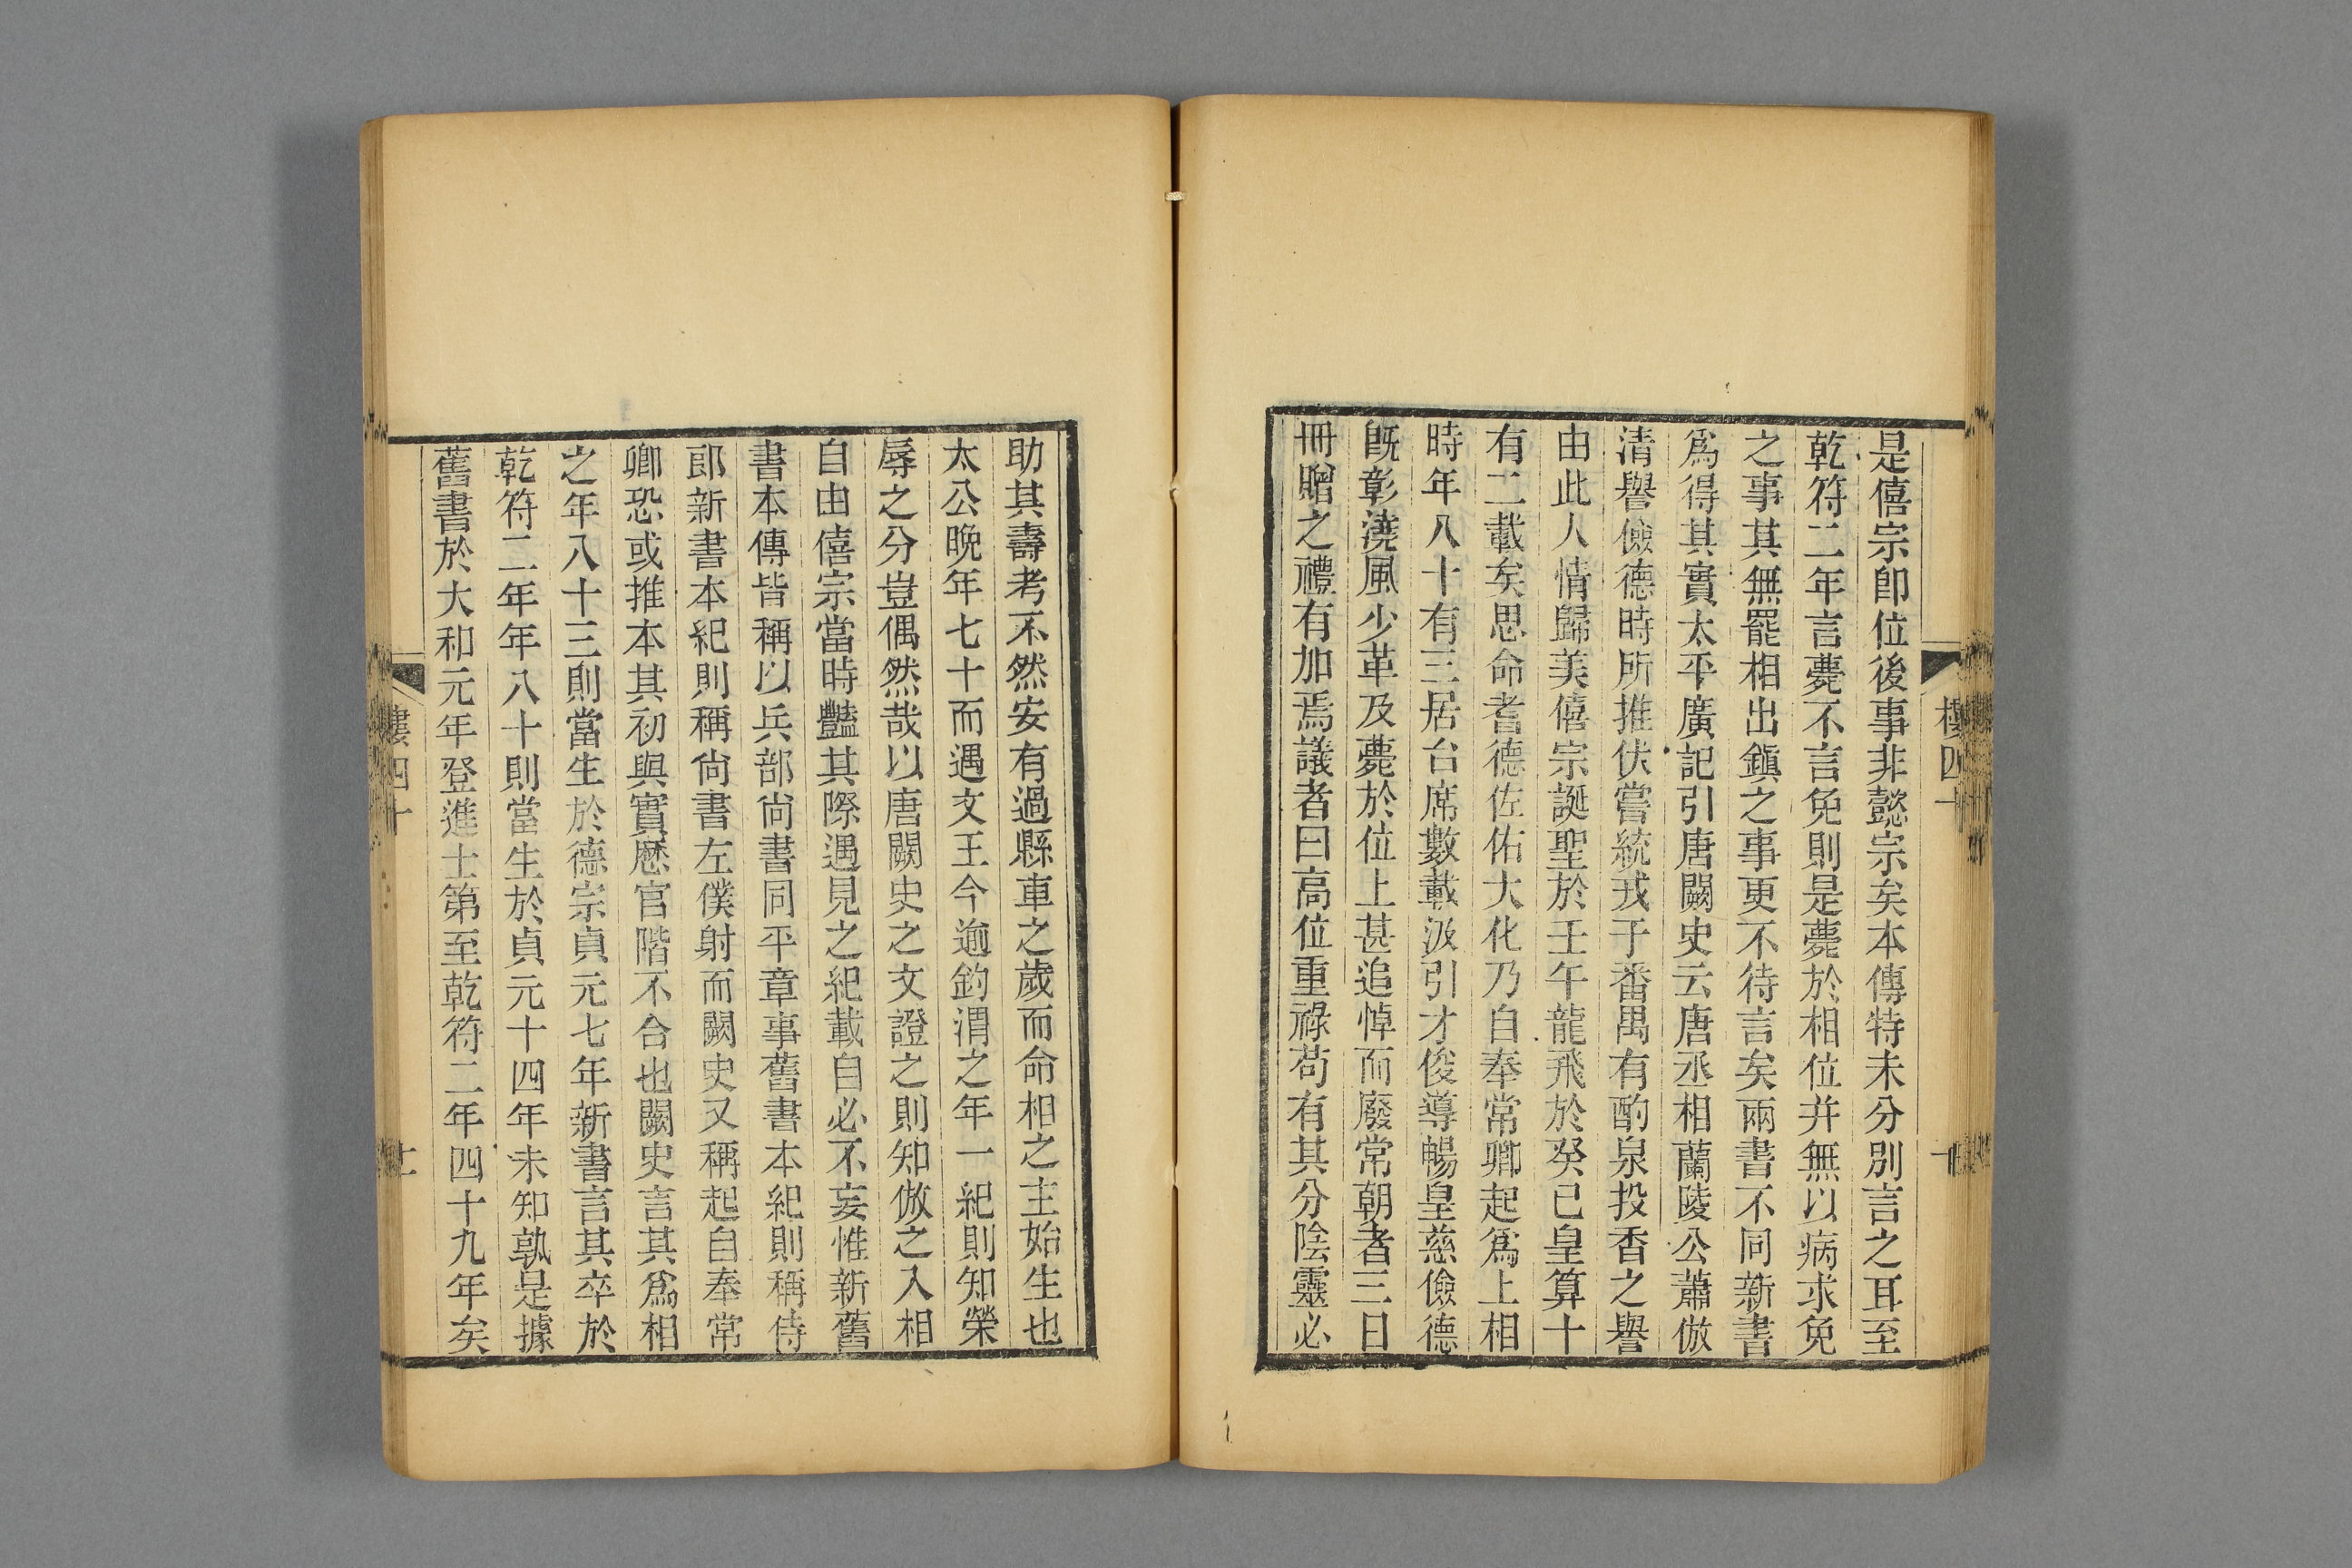 是僖宗卽位後事非懿宗矣本傳特未分別言之耳至
乾符二年言薨不言免則是薨於相位并無以病求免
之事其無罷相出鎭之事更不待言矣兩書不同新書
爲得其實太平廣記引唐闕史云唐丞相蘭陵公蕭倣
清譽儉德時所推伏嘗統戎于番禺有酌泉投香之譽
由此人情歸美僖宗誕聖於壬午龍飛於癸巳皇算十
有二載矣思命耆德佐佑大化乃自奉常卿起爲上相
時年八十有三居台席數載汲引才俊導暢皇慈儉德
旣彰澆風少革及薨於位上甚追悼而廢常朝者三日
冊贈之禮有加焉議者曰高位重祿苟有其分陰靈必
樓四十
十
助其壽考不然安有過縣車之歲而命相之主始生也
太公晚年七十而遇文王今逾釣渭之年一紀則知榮
辱之分豈偶然哉以唐闕史之文證之則知倣之入相
自由僖宗當時豔其際遇見之紀載自必不妄惟新舊
書本傳皆稱以兵部尙書同平章事舊書本紀則稱侍
郎新書本紀則稱尙書左僕射而闕史又稱起自奉常
卿恐或推本其初與實歷官階不合也闕史言其爲相
之年八十三則當生於德宗貞元七年新書言其卒於
乾符二年年八十則當生於貞元十四年未知孰是據
舊書於大和元年登進士第至乾符二年四十九年矣
樓四十
十一